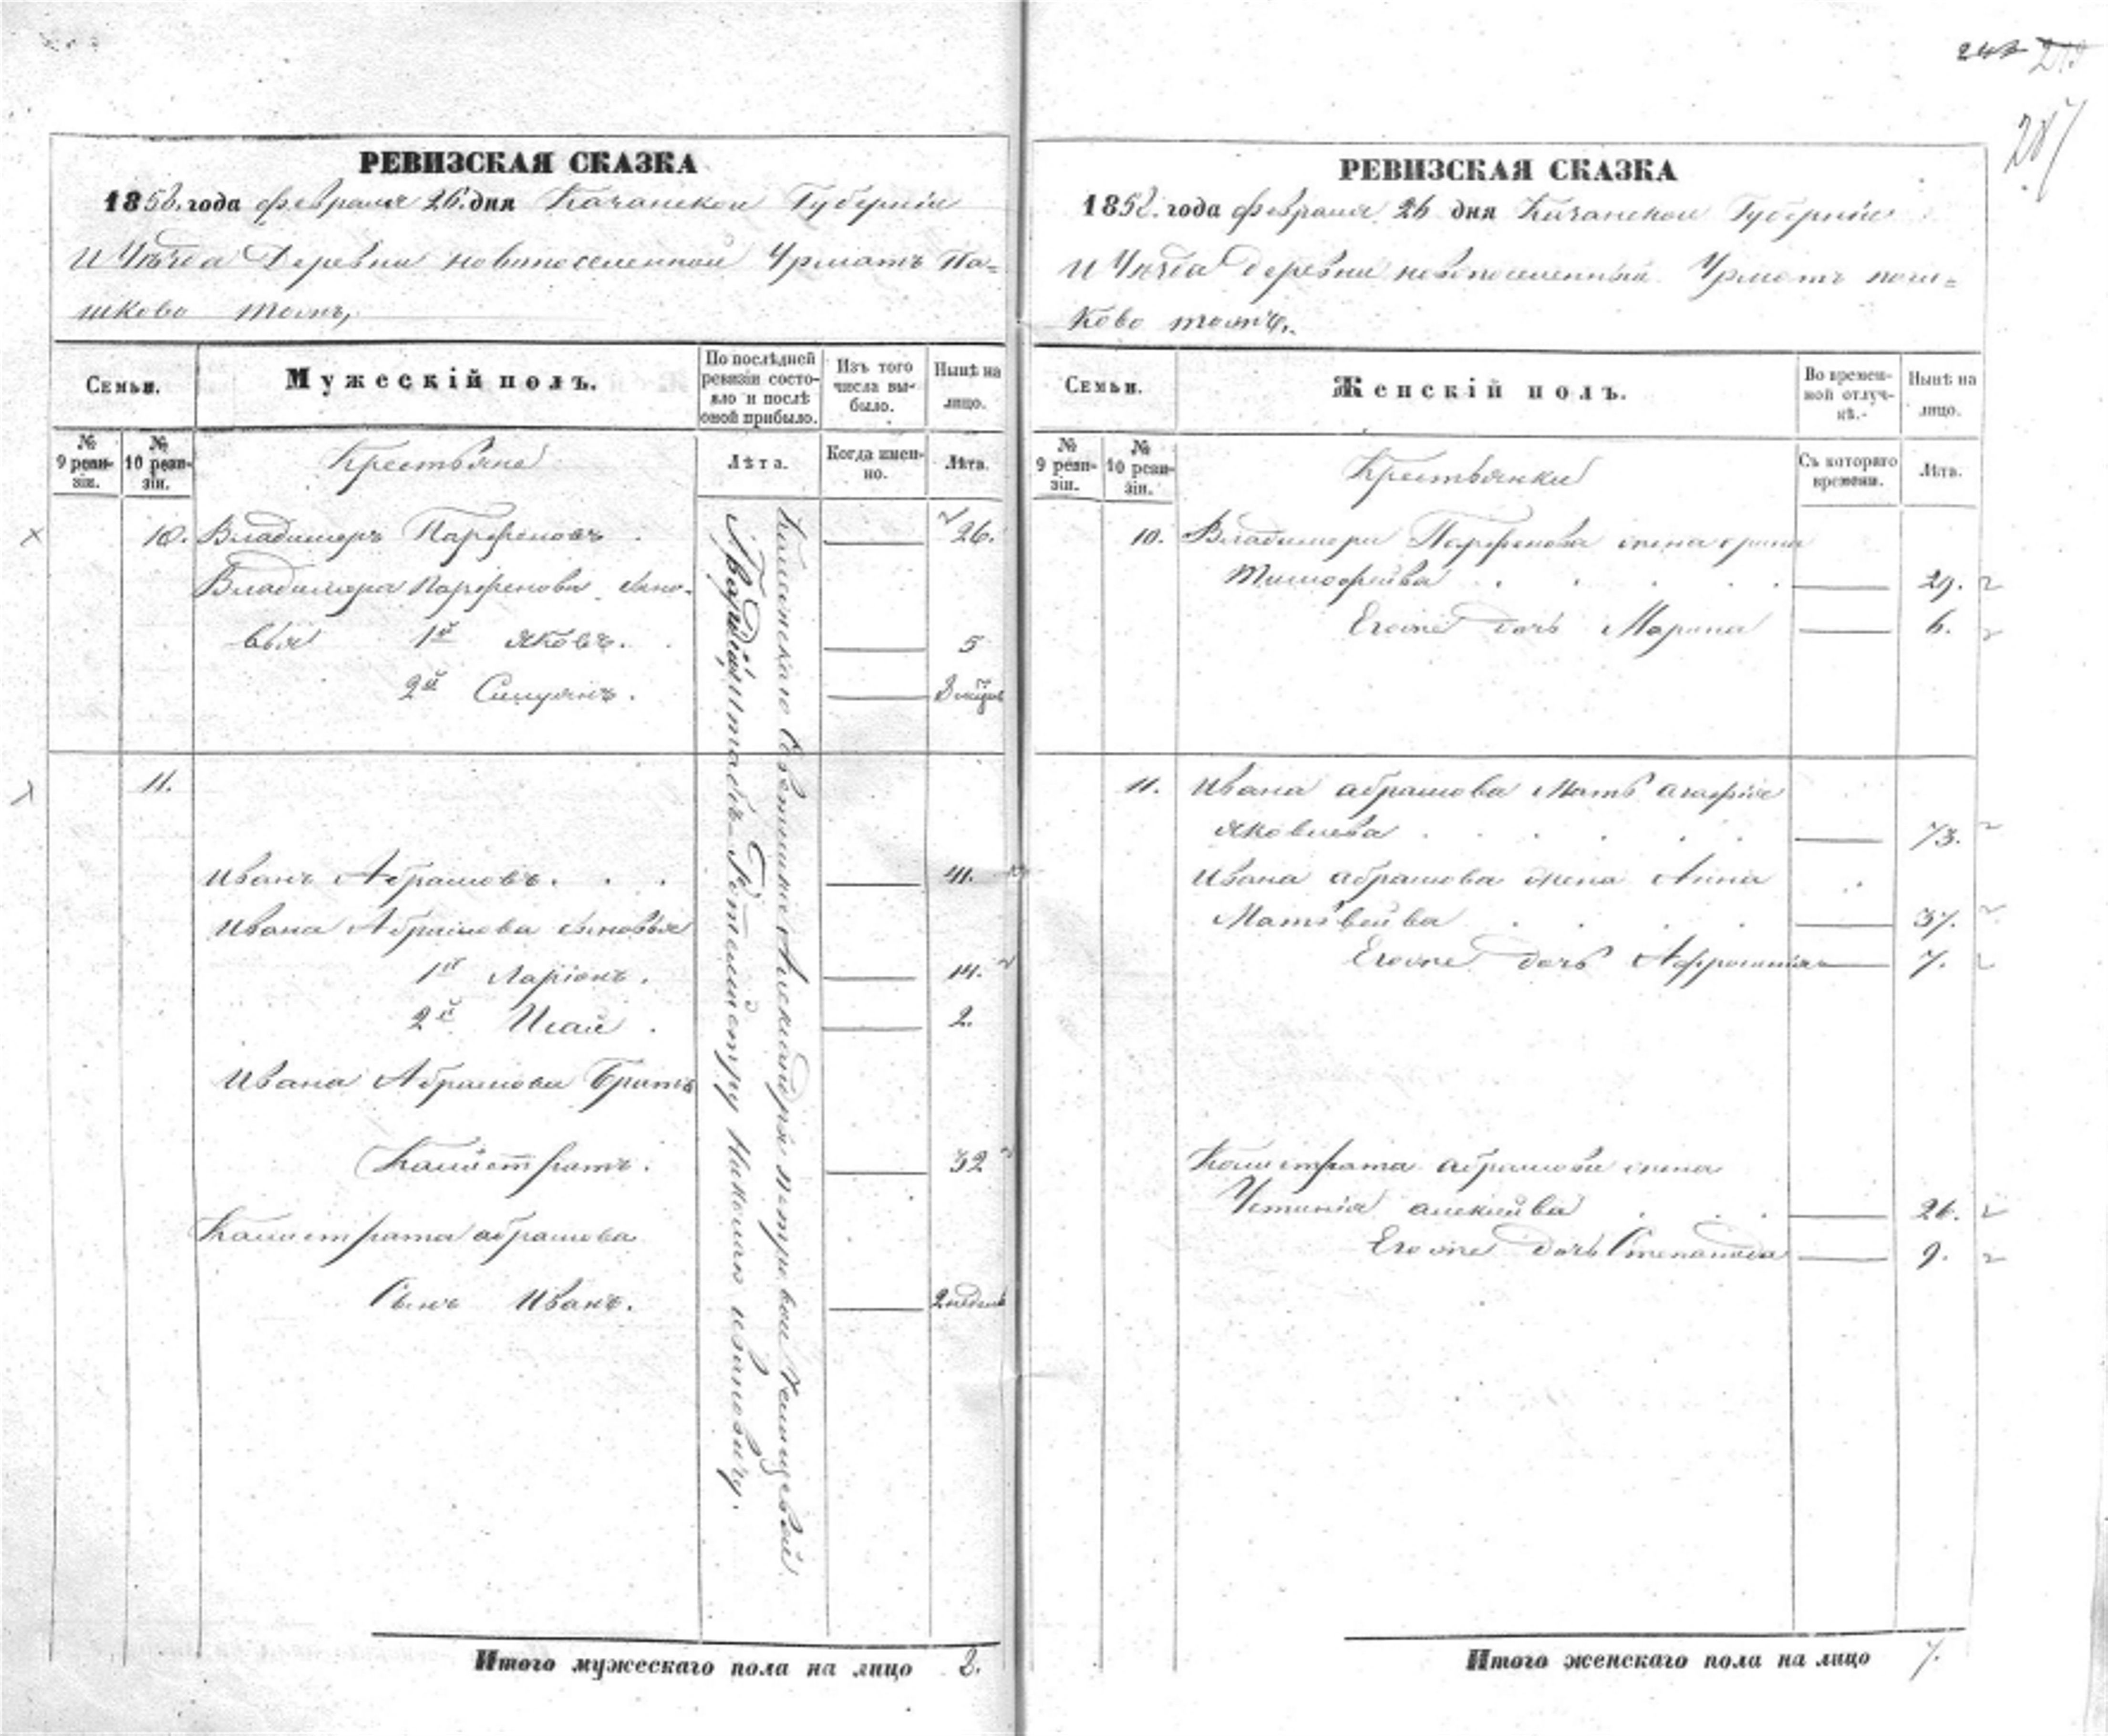 РЕВИЗСКАЯ СКАЗКА
1858. года февраля 26. дня Казанской Губерніи
И Уѣзда Деревни новопоселенной Урматъ Па=
шково тожъ,
Семьи.
Мужескій полъ.
По послѣдней ревизіи состояло и послѣ оной прибыло.
Изъ того числа выбыло.
Нынѣ на лицо.
№ 9 ревизіи.
№ 10 ревизіи.
Крестьяне
Лѣта.
Когда именно.
Лѣта.
10. Владимеръ Парфеновъ . 26.
Владимера Парфенова сыно-
вья 1й Яковъ. 5
2й Силуянъ. 3
11.
Иванъ Абрамовъ. . . 41.
Ивана Абрамова сыновья
1й Ларіонъ. 14.
2й Исай . 2.
Ивана Абрамова Братъ
Калистратъ. 32
Калистрата абрамова
Сынъ Иванъ. 2 недель
Александры петровой
Гвардіи Штабъ-Ротмистру Николаю ивановичу.
Итого мужескаго пола на лицо 8.
287
РЕВИЗСКАЯ СКАЗКА
1858. года февраля 26 дня Казанской Губерніи
И Уѣзда деревни новопоселенной Урматъ паш=
ково тожъ.
Семьи.
Женскій полъ.
Во временной отлучкѣ.
Нынѣ на лицо.
№ 9 ревизіи.
№ 10 ревизіи.
Крестьянки
Съ котораго времени.
Лѣта.
10. Владимера Парфенова жена орина
Тимофеева . . . . 29.
Егоже дочь Марина 6.
11. Ивана абрамова Мать агафия
яковлева . . . . 73.
Ивана абрамова жена Анна
Матвеева . . . . 37.
Егоже дочь Афросинья 7.
Калистрата абрамова жена
Устинія алексеева . . . 26.
Егоже дочь Степанида 9.
Итого женскаго пола на лицо 7.